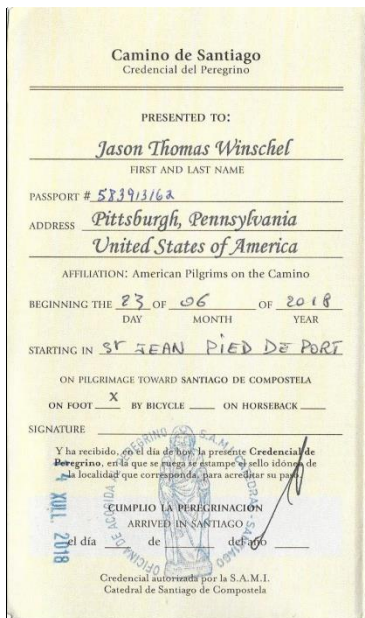 Camino de Santiago
Credencial del Peregrino
PRESENTED TO:
Jason Thomas Winschel
FIRST AND LAST NAME
PASSPORT # 583913162
ADDRESS Pittsburgh, Pennsylvania
United States of America
AFFILIATION: American Pilgrims on the Camino
BEGINNING THE 23 OF 06 OF 2018
DAY MONTH YEAR
STARTING IN ST JEAN PIED DE PORT
ON PILGRIMAGE TOWARD SANTIAGO DE COMPOSTELA
ON FOOT X BY BICYCLE ON HORSEBACK
SIGNATURE
Y ha recibido, en el día de hoy, la presente Credencial de
Peregrino, en la que se ruega se estampe el sello idóneo de
la localidad que corresponda, para acreditar su paso.
CUMPLIO LA PEREGRINACIÓN
ARRIVED IN SANTIAGO
el día de del año
Credencial autorizada por la S.A.M.I.
Catedral de Santiago de Compostela
XUL. 2018
OFICINA DE ACOLLIDA Ó PEREGRINO
S.A.M.I. CATEDRAL SANTIAGO